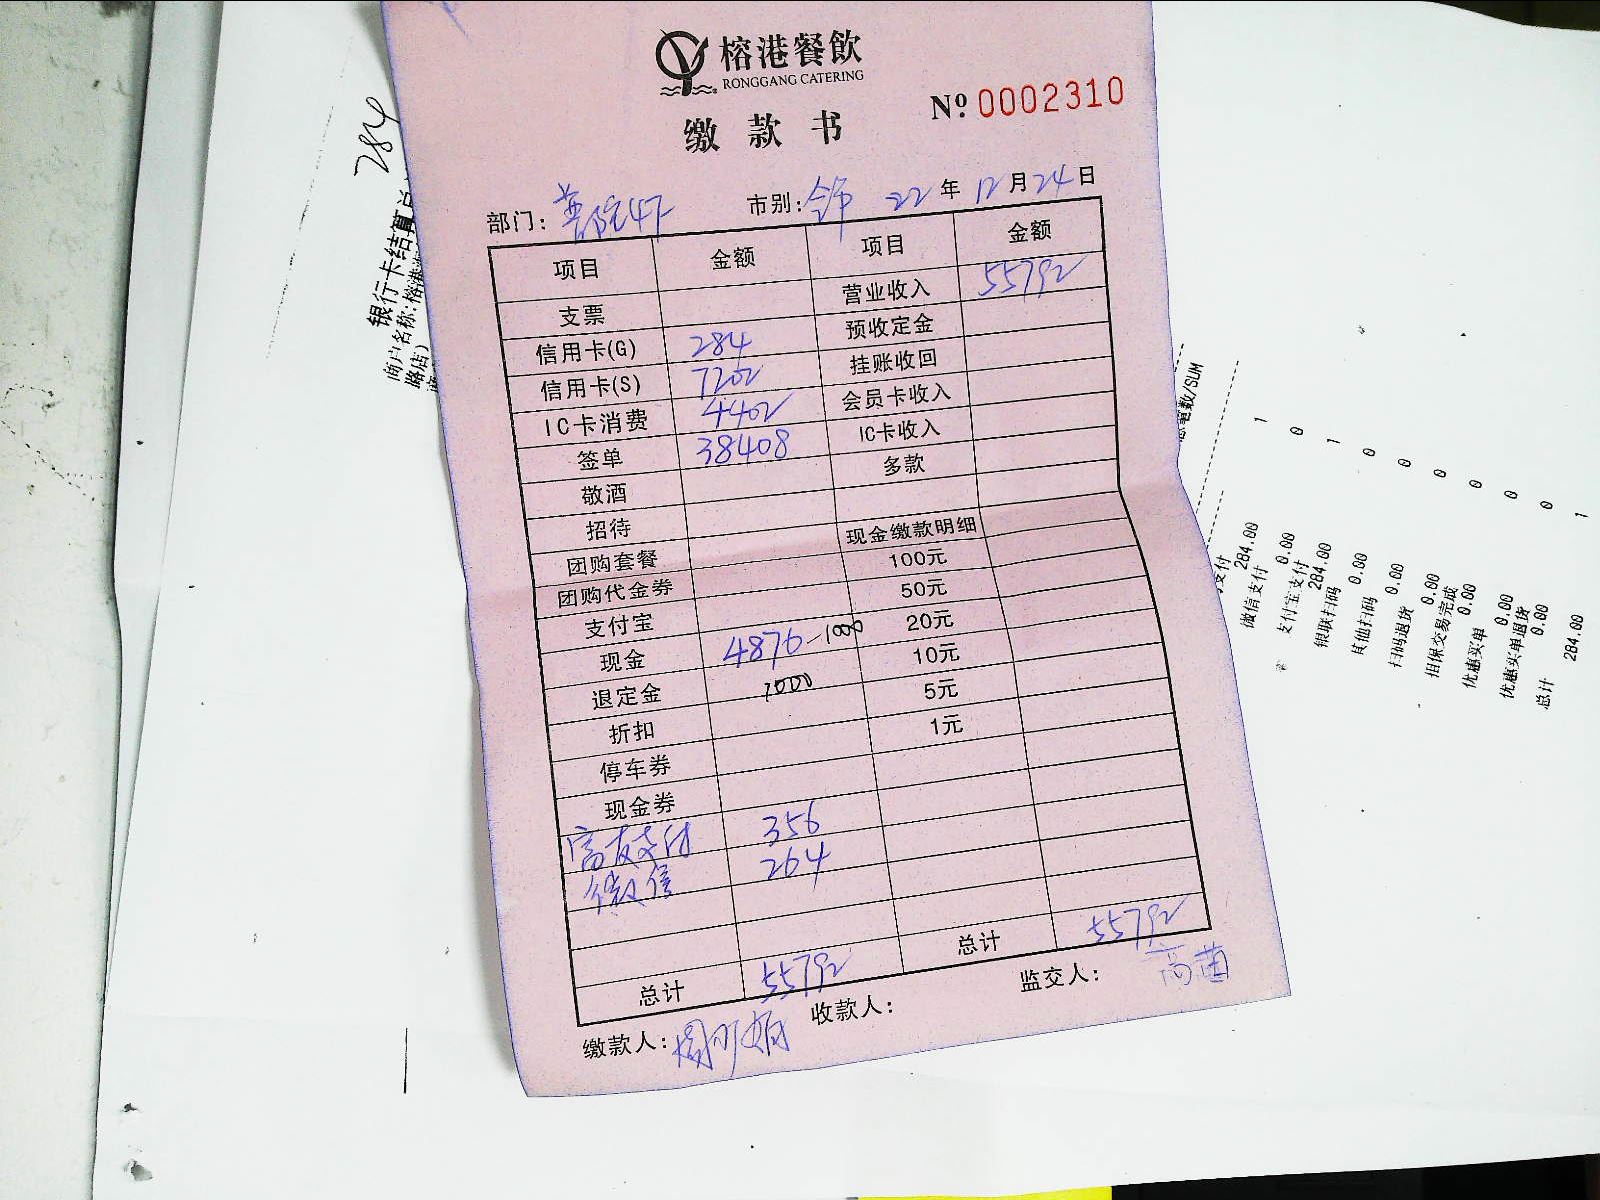 榕港餐飲
RONGGANG CATERING
缴款书
Nº 0002310
部门: 市别: 22年12月24日
项目 金额 项目 金额
支票 营业收入 55792
信用卡(G) 284 预收定金
信用卡(S) 7202 挂账收回
IC卡消费 4402 会员卡收入
签单 38408 IC卡收入
敬酒 多款
招待
团购套餐 现金缴款明细
团购代金券 100元
支付宝 50元
现金 4876-1000 20元
退定金 1000 10元
折扣 5元
停车券 1元
现金券
支付 356
微信 264
总计 55792 总计 55792
缴款人: 收款人: 监交人: 高茜
284
银行卡结算总
商户名称:榕港海
路店)
总笔数/SUM
1
284.00
微信支付 0
0.00
支付宝支付 1
284.00
银联扫码 0
0.00
其他扫码 0
0.00
扫码退货 0
0.00
担保交易完成 0
0.00
优惠买单 0
0.00
优惠买单退货 0
0.00
总计 1
284.00